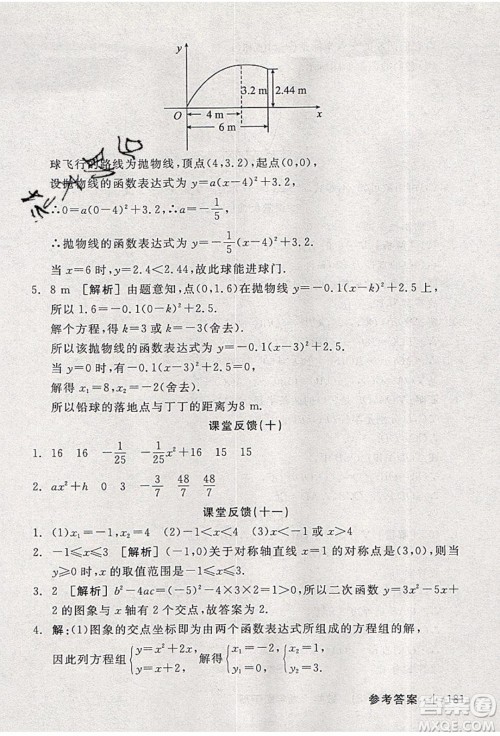 y
3.2 m 2.44 m
4 m
O x
6 m
球飞行的路线为抛物线，顶点(4,3.2)，起点(0,0)，
设抛物线的函数表达式为 y=a(x-4)²+3.2，
∴0=a(0-4)²+3.2，∴a=-1/5，
∴抛物线的函数表达式为 y=-1/5(x-4)²+3.2.
当 x=6 时，y=2.4<2.44，故此球能进球门.
5. 8 m [解析] 由题意知，点(0,1.6)在抛物线 y=-0.1(x-k)²+2.5 上，
所以 1.6=-0.1(0-k)²+2.5.
解这个方程，得 k=3 或 k=-3(舍去).
所以该抛物线的函数表达式为 y=-0.1(x-3)²+2.5.
当 y=0 时，-0.1(x-3)²+2.5=0，
解得 x₁=8，x₂=-2(舍去).
所以铅球的落地点与丁丁的距离为8 m.
课堂反馈(十)
1. 16 16 -1/25 -1/25x²+16
2. ax²+h 0 3 -3/7 48/7 48/7
课堂反馈(十一)
1. (1)x₁=1，x₂=3 (2)1<x<3 (3)x>2 (4)k<2
2. -1≤x≤3 [解析] (-1,0)关于对称轴直线 x=1 的对称点是(3,0)，则当
y≥0 时，x 的取值范围是-1≤x≤3.
3. 2 [解析] ∵Δ=b²-4ac=(-5)²-4×3×2=1>0，所以二次函数 y=3x²-5x+
2 的图象与 x 轴有 2 个交点，故答案为2.
4. 解：(1)图象的交点坐标即为由两个函数表达式所组成的方程组的解，
因此列方程组
参考答案 181